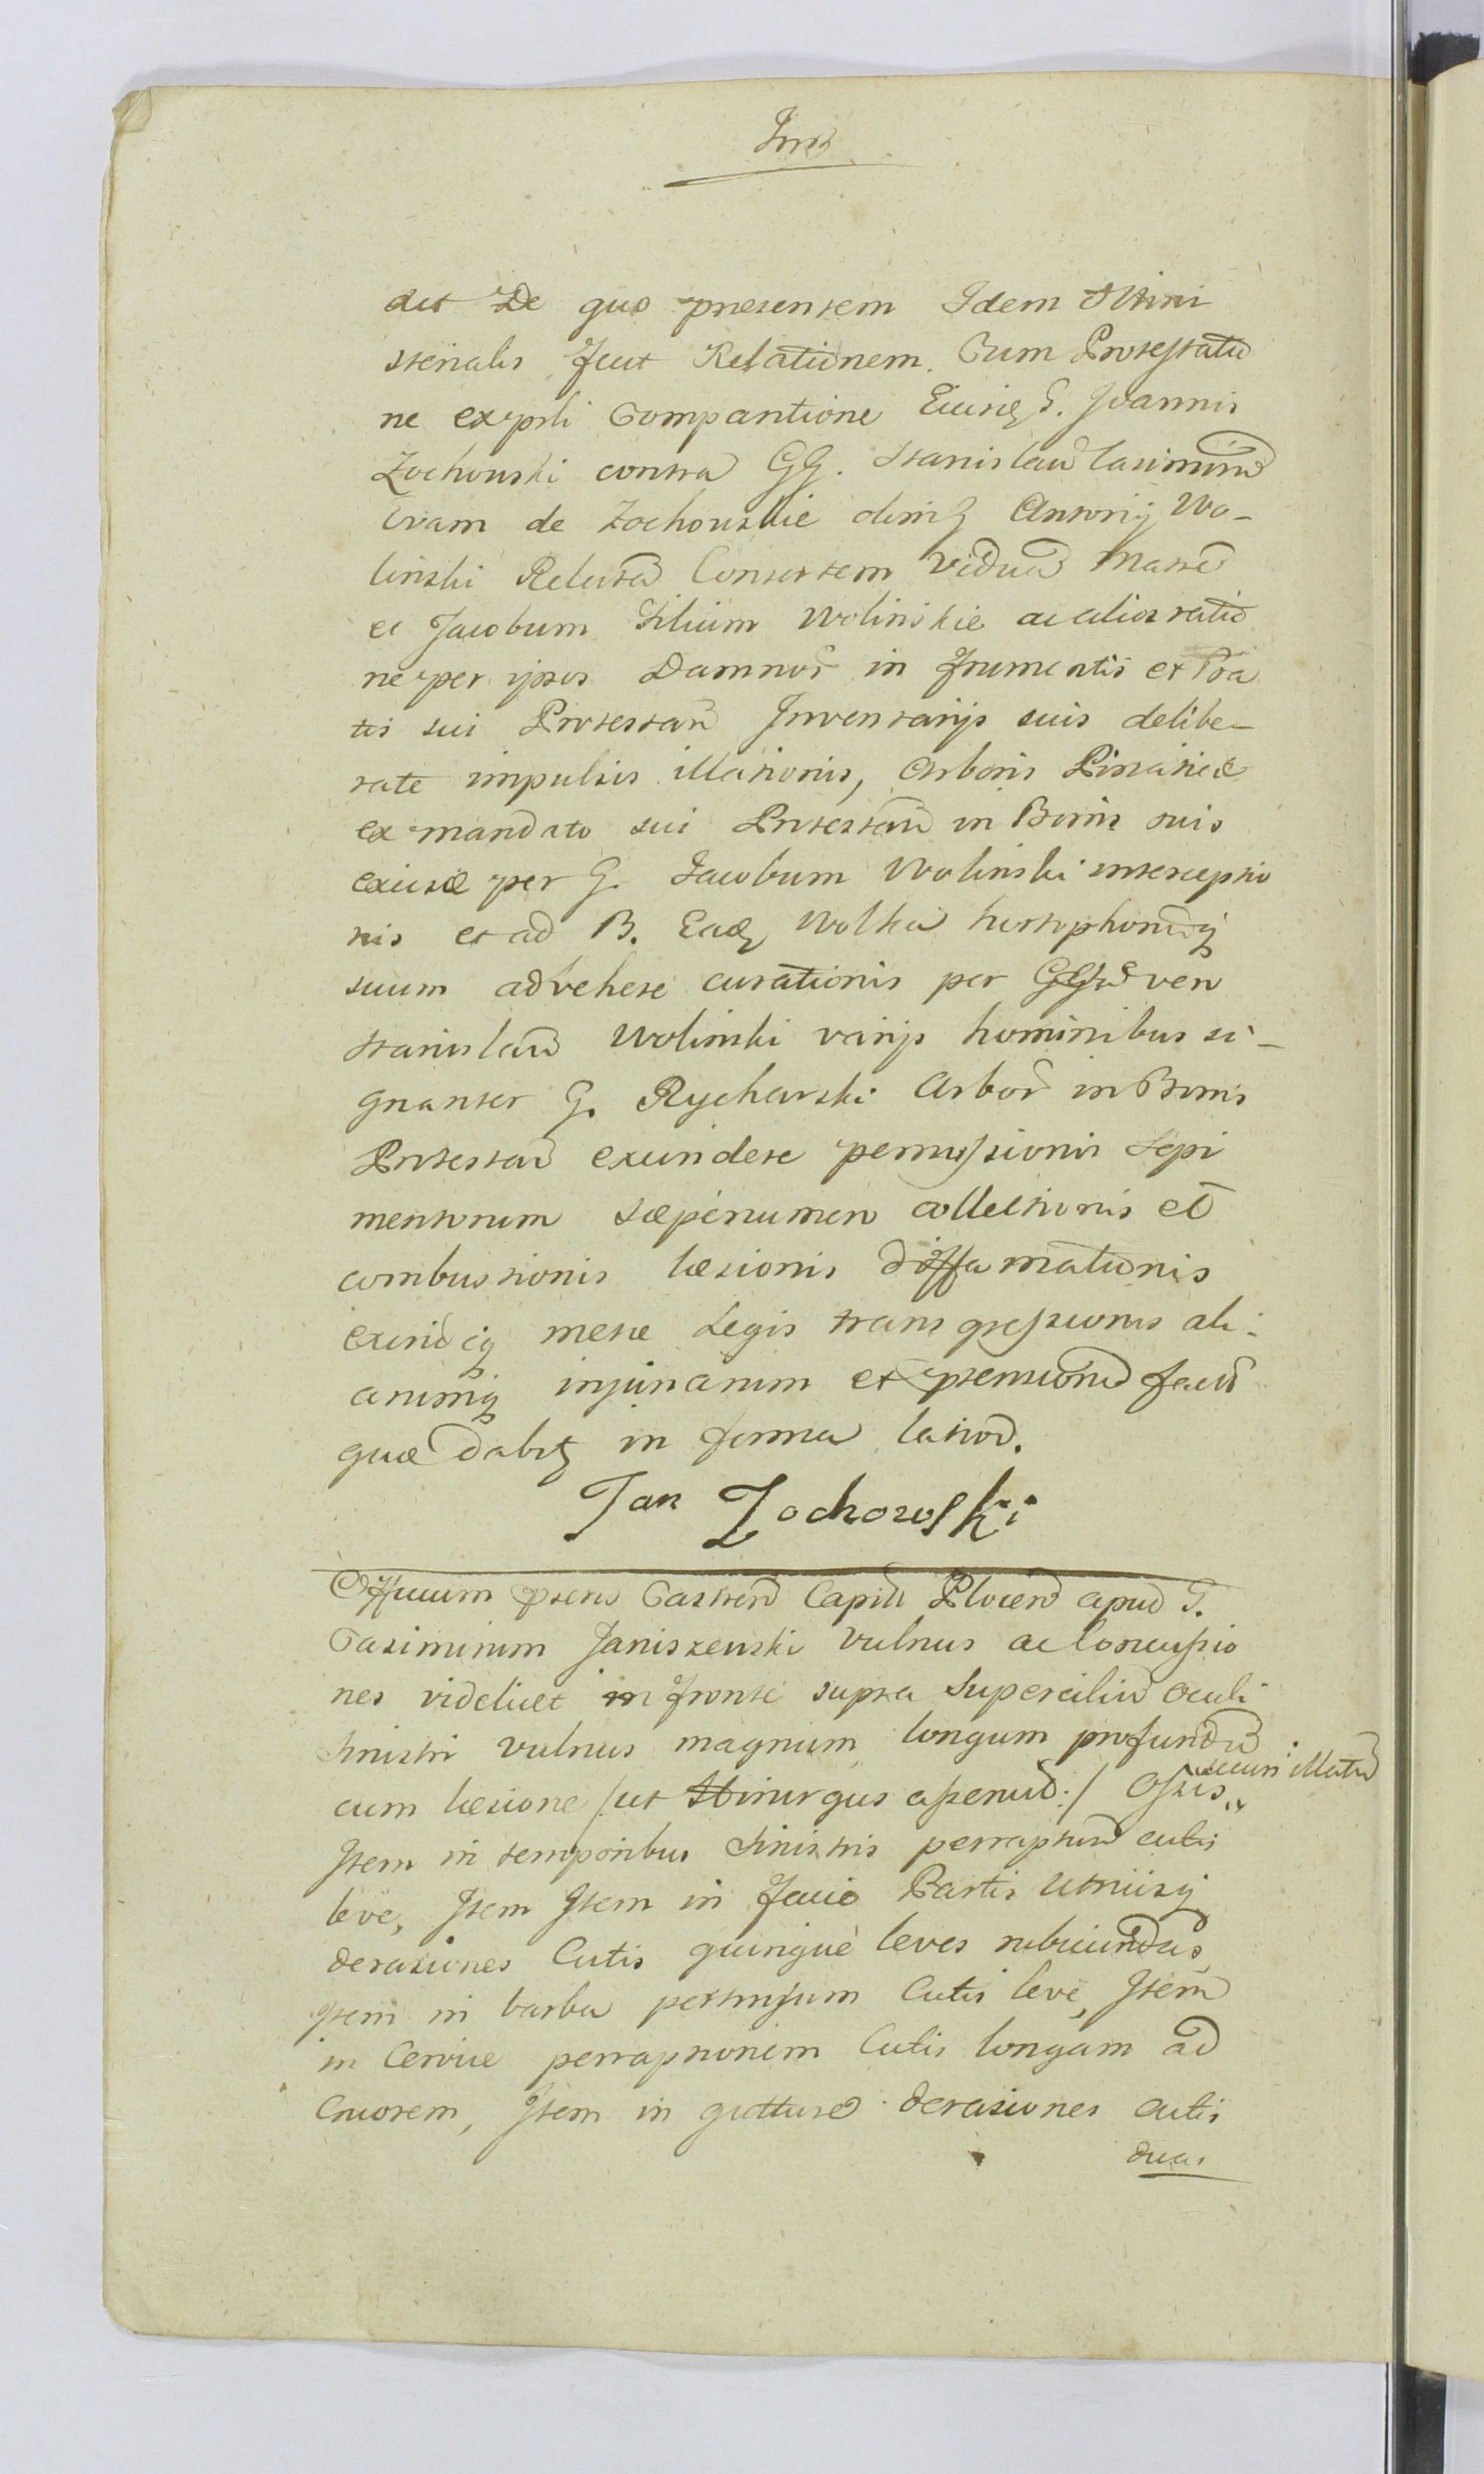 dit De quo presentem Idem Mini
sterialis fecit Relationem. Cum Protestatio
ne ex psti Compantione Eiusq G. Joannis
Zochowski contra GG. Stanislaū Casimirū
Evam de Zochowskie olim G Antonij Wo-
linski Relictā Consortem Viduā Matrē
et Jacobum Filium Wolinskie ac alios ratio
ne per ipsos Damnoȓ in frumentis et Pra
tis sui Protestan Inventarijs suis delibe-
rate impulsis illationis, Arboris Pinaticæ
ex mandato sui Protestan in Bonis suis
excisæ per G. Jacobum Wolinski interceptio
nis et ad B. Eadq Wolka hortophoriūq
suum advehere curationis per GG vero
Stanislaū Wolinski varijs hominibus si-
gnanter G. Rycharski Arboȓ in Bonis
Protestan excindere permissionis Sepi
mentorum sæpenumero collectionis et
combustionis læsionis diffamationis
exindeq mere Legis transgressionis ali-
arumq injuriarum et prensionū factū
quæ dabit in forma latioȓ.
Jan Zochowski
Officium præns Castren Capitī Plocen apud G.
Casimirum Janiszewski Vulnus ac Concussio
nes videlicet in fronte supra Superciliū oculi
sinistri vulnus magnum longum profundū
cum læsione /:ut Chirurgus asseruit:/ Ossis,, illatū
Item in temporibus Sinistris perraptum cutis
leve, Item Item in facie Partis Utriusq
derasiones Cutis quinque leves rubicundas,
Item in barba pertusum Cutis leve, Item
in Cervice perraptionem Cutis longam ad
Cruorem, Item in gutture derasiones cutis
duas